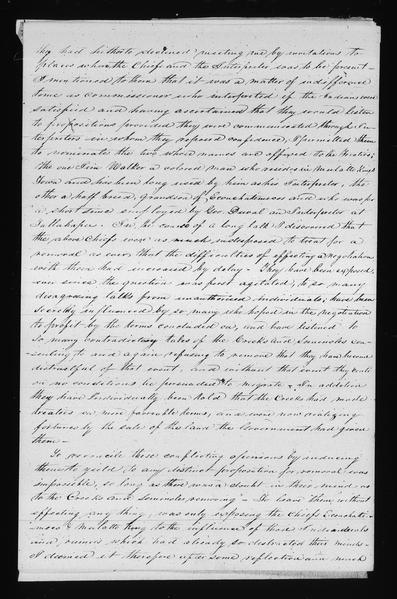 they had hitherto declined meeting me by invitations to
places where the Chiefs and the Interpreter was to be present -
I mentioned to them that it was a matter of indifference
to me as commissioner who interpreted if the Indians were
satisfied and having ascertained that they would listen
to propositions provided they were communicated through In-
terpreters in whom they reposed confidence, I permitted them
to nominate the two whose names are affixed to the Treaties;
the one Jim Walker a colored man who resides in Mulatto Kings
Town and has been long used by him as his Interpreter, the
other a half breed, Grandson of Econchatimicos and who was for
a short time employed by Gov. Duval as Interpreter at
Tallahassee. In the course of a long talk I discovered that
the above Chiefs were as much indisposed to treat for a
removal as ever, that the difficulties of effecting a negotiation
with them had increased by delay - They have been exposed,
ever since the question was first agitated, to so many
disagreeing talks from unauthorised individuals, had been
so influenced by so many who hoped in the negotiation
to profit by the terms concluded on, and have listened to
so many contradictory tales of the Creeks and Seminoles con-
senting to and again refusing to remove that they have become
distrustful of that event, and without that event they will
on no conditions be persuaded to migrate - In addition
they have individually been told that the Creeks had made
locations on more favorable terms, and were now realizing
fortunes by the sale of the land the Government had given
them -
To reconcile these conflicting opinions by inducing
them to yield, to any distinct proposition for removal was
impossible, so long as there was a doubt in their minds as
to the Creeks and Seminoles removing - To leave them without
effecting any thing, was only exposing the Chiefs Econchati-
micos & Mulatto King to the influence of that Individuals
and rumor which had already so distracted their minds -
I deemed it therefore upon some reflection and much